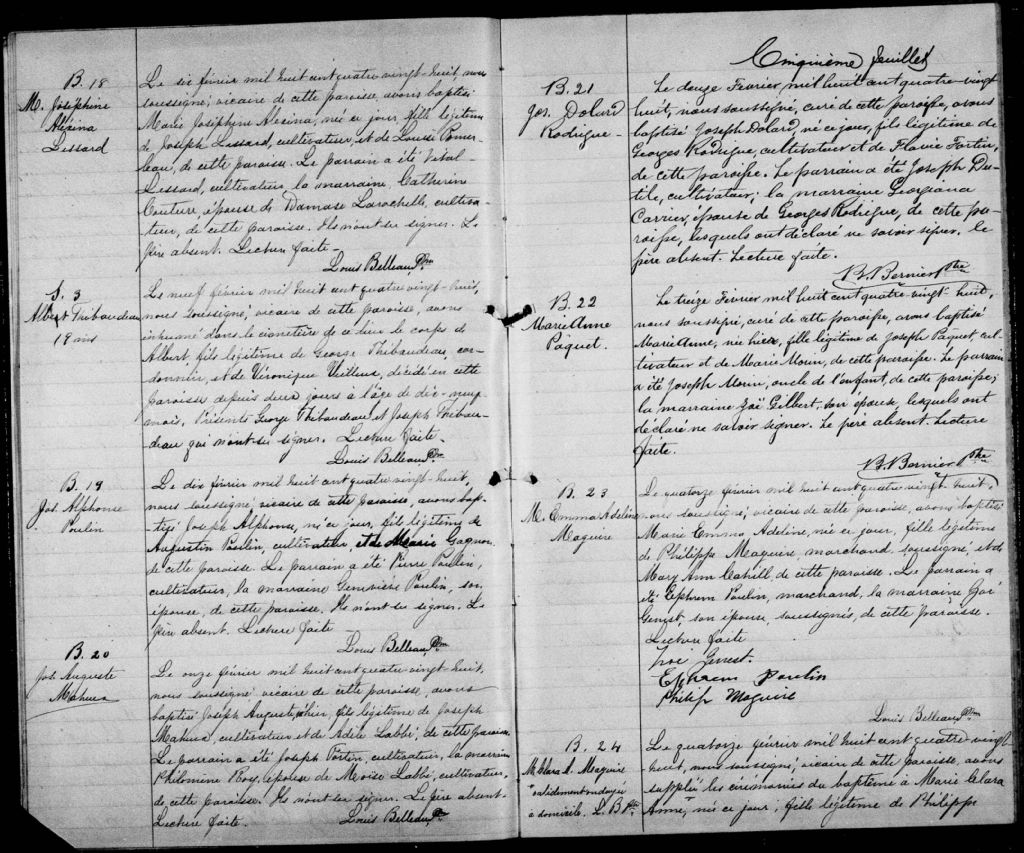 B. 18
M. Joséphine
Alexina
Lessard
Le six février mil huit cent quatre vingt-huit, nous
soussigné, vicaire de cette paroisse, avons baptisé
Marie Joséphine Alexina, née ce jour, fille légitime
de Joseph Lessard, cultivateur, et de Louise Pomer-
leau, de cette paroisse. Le parrain a été Vital
Lessard, cultivateur, la marraine, Catherine
Couture, épouse de Damase Larochelle, cultiva-
teur, de cette paroisse. Ils n'ont su signer. Le
père absent. Lecture faite.
Louis Belleau Ptre
S. 3
Albert Thibaudeau
19 ans
Le neuf février mil huit cent quatre vingt-huit,
nous soussigné, vicaire de cette paroisse, avons
inhumé dans le cimetière de ce lieu le corps d'
Albert fils légitime de George Thibaudeau, cor-
donnier, et de Véronique Veilleux, décédé en cette
paroisse depuis deux jours à l'âge de dix-neuf
mois. Présents George Thibaudeau et Joseph Thibau-
deau qui n'ont su signer. Lecture faite.
Louis Belleau Ptre
B. 19
Jos. Alphonse
Poulin
Le dix février mil huit cent quatre vingt-huit,
nous soussigné vicaire de cette paroisse, avons bap-
tisé Joseph Alphonse, né ce jour, fils légitime de
Augustin Poulin, cultivateur, et de Marie Gagnon,
de cette paroisse. Le parrain a été Pierre Poulin,
cultivateur, la marraine Geneviève Poulin, son
épouse, de cette paroisse. Ils n'ont su signer. Le
père absent. Lecture faite
Louis Belleau Ptre
B. 20
Jos. Auguste
Maheux
Le onze février mil huit cent quatre vingt-huit,
nous soussigné vicaire de cette paroisse, avons
baptisé Joseph Auguste, né hier, fils légitime de Joseph
Maheux, cultivateur et de Adèle Labbé, de cette paroisse.
Le parrain a été Joseph Fortin, cultivateur, la marraine
Philomène Roy, épouse de Moïse Labbé, cultivateur,
de cette paroisse. Ils n'ont su signer. Le père absent.
Lecture faite.
Louis Belleau Ptre
Cinquième feuillet
B. 21
Jos. Dolard
Rodrigue
Le douze Février, mil huit cent quatre-vingt
huit, nous soussigné, curé de cette paroisse, avons
baptisé Joseph Dolard, né ce jour, fils légitime de
Georges Rodrigue, cultivateur et de Flavie Fortin,
de cette paroisse. Le parrain a été Joseph Du-
tile, cultivateur; la marraine Georgiana
Carrier, épouse de Georges Rodrigue, de cette pa-
roisse, lesquels ont déclaré ne savoir signer. le
père absent. Lecture faite.
B. Bernier Ptre
B. 22
Marie Anne
Pâquet.
Le treize Février mil huit cent quatre-vingt huit,
nous soussigné, curé de cette paroisse, avons baptisé
Marie Anne, née hier, fille légitime de Joseph Pâquet, cul-
tivateur et de Marie Morin, de cette paroisse. Le parrain
a été Joseph Morin, oncle de l'enfant, de cette paroisse;
la marraine Zoë Gilbert, son épouse, lesquels ont
déclaré ne savoir signer. Le père absent. Lecture
faite.
B. Bernier Ptre
B. 23
M. Emma Adeline
Maguire
Le quatorze février mil huit cent quatre vingt huit,
nous soussigné, vicaire de cette paroisse, avons baptisé
Marie Emma Adeline, née ce jour, fille légitime
de Philippe Maguire marchand, soussigné, et de
Mary Ann Cahill, de cette paroisse. Le parrain a
été Ephrem Poulin, marchand, la marraine Zoé
Genest, son épouse, soussignés, de cette paroisse.
Lecture faite
Zoé Genest.
Ephrem Poulin
Philip Maguire
Louis Belleau Ptre
B. 24
M. Clara A. Maguire
validement ondoyée
à domicile. L. B. Ptre
Le quatorze février mil huit cent quatre-vingt
huit, nous soussigné, vicaire de cette paroisse, avons
suppléé les cérémonies du baptême à Marie Clara
Anne, née ce jour, fille légitime de Philippe